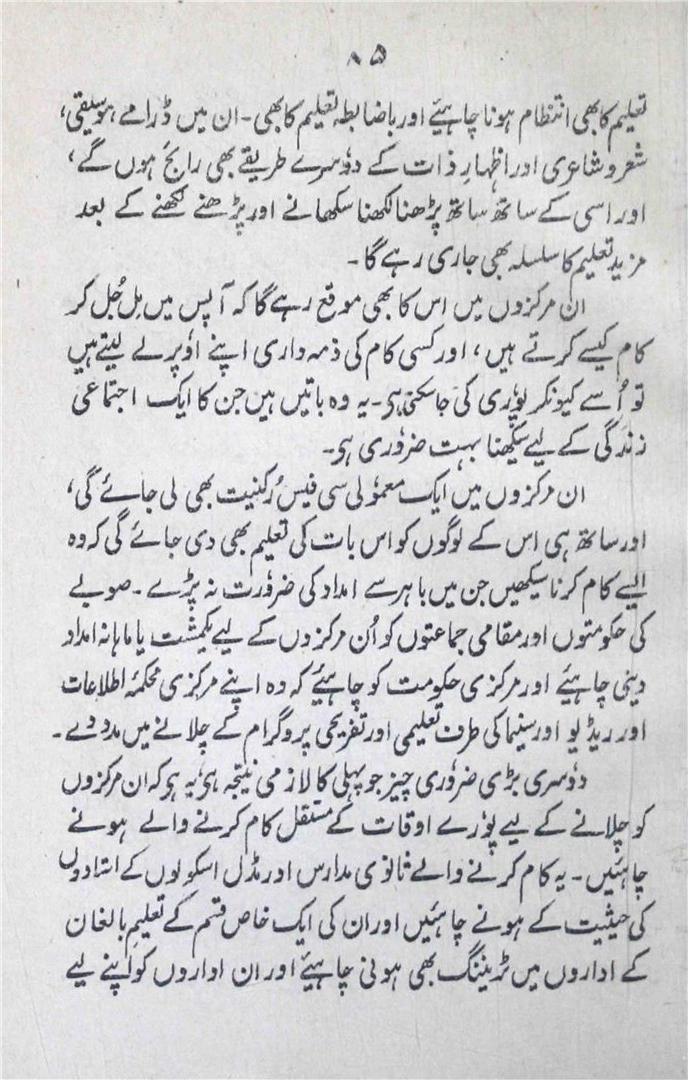 ۸۵
تعلیم کا بھی انتظام ہونا چاہیئے اور باضابطہ تعلیم کا بھی۔ ان میں ڈرامے، موسیقی،
شعر و شاعری اور اظہارِ ذات کے دوسرے طریقے بھی رائج ہوں گے،
اور اسی کے ساتھ ساتھ پڑھنا لکھنا سکھانے اور پڑھنے لکھنے کے بعد
مزید تعلیم کا سلسلہ بھی جاری رہے گا۔
ان مرکزوں میں اس کا بھی موقع رہے گا کہ آپس میں مِل جُل کر
کام کیسے کرتے ہیں، اور کسی کام کی ذمہ داری اپنے اوٗپر لے لیتے ہیں
تو اُسے کیونکر پوٗری کی جاسکتی ہی۔ یہ وہ باتیں ہیں جن کا ایک اجتماعی
زندگی کے لیے سیکھنا بہت ضروری ہی۔
ان مرکزوں میں ایک معموٗلی سی فیس رُکنیت بھی لی جائے گی،
اور ساتھ ہی اس کے لوگوں کو اس بات کی تعلیم بھی دی جائے گی کہ وہ
ایسے کام کرنا سیکھیں جن میں باہر سے امداد کی ضرورت نہ پڑے۔ صوبے
کی حکومتوں اور مقامی جماعتوں کو اُن مرکزوں کے لیے یکمشت یا ماہانہ امداد
دینی چاہیئے اور مرکزی حکومت کو چاہیئے کہ وہ اپنے مرکزی محکمۂ اطلاعات
اور ریڈیو اور سنیما کی طرف تعلیمی اور تفریحی پروگرام کے چلانے میں مدد دے۔
دوٗسری بڑی ضروٗری چیز جو پہلی کا لازمی نتیجہ ہی، یہ ہی کہ ان مرکزوں
کو چلانے کے لیے پوٗرے اوقات کے مستقل کام کرنے والے ہونے
چاہئیں۔ یہ کام کرنے والے ثانوی مدارس اور مڈل اسکولوں کے استادوں
کی حیثیت کے ہونے چاہئیں اور ان کی ایک خاص قسم کے تعلیمِ بالغان
کے اداروں میں ٹریننگ بھی ہونی چاہیئے اور ان اداروں کو اپنے لیے